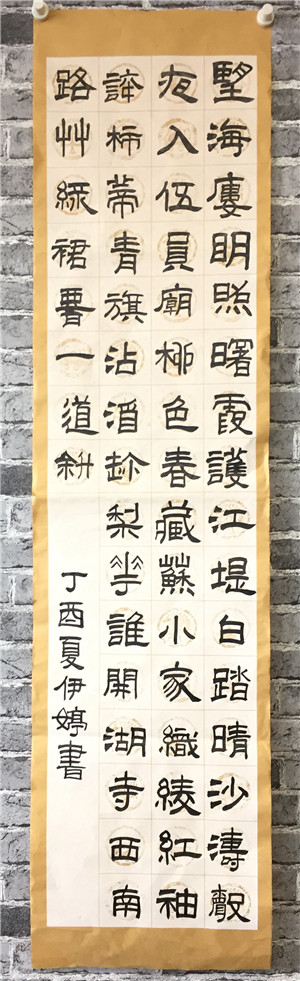 朢海廔明照曙霞護江堤白踏晴沙濤聲
夜入伍員廟柳色春藏蘇小家織綾紅袖
誇柿蒂青旗沽酒趁梨花誰開湖寺西南
路艸綠裙腰一道斜
丁酉夏伊婷書